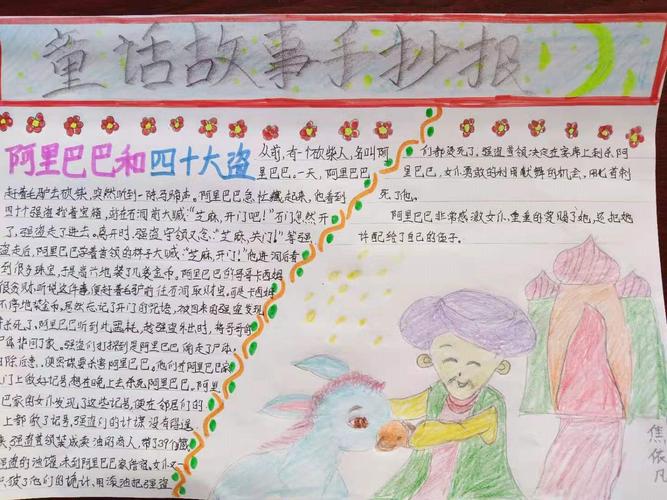 童话故事手抄报
阿里巴巴和四十大盗
从前,有一个砍柴人,名叫阿
里巴巴。一天,阿里巴巴
赶着毛驴去砍柴,突然听到一阵马蹄声。阿里巴巴急忙藏起来,他看到
四十个强盗抱着宝箱,站在石洞前大喊:“芝麻,开门吧!”石门忽然开
了,强盗走了进去。离开时,强盗守领又念:“芝麻,关门!”等强
盗走后,阿里巴巴学着首领的样子大喊:“芝麻,开门吧!”他进洞后看
到很多珠宝,于是高兴地装了几袋金币。阿里巴巴的哥哥卡西姆
很贪财,听说这件事,便赶着毛驴前往石洞取财宝。可是卡西姆
不停地装金币,居然忘记了开门的咒语,被回来的强盗发现
杀死了。阿里巴巴听到此噩耗,趁强盗外出时,将哥哥的
尸体背回了家。强盗们打探到是阿里巴巴偷走了尸体,
除后患,便密谋要杀害阿里巴巴。他们在阿里巴巴家
门上做好记号,想在晚上去杀死阿里巴巴。阿里
巴家的女仆发现了这些记号,便在邻居们的
上都做了记号,强盗们的计谋没有得逞
来,强盗首领装成卖油的商人,带了37个藏
强盗的油馕,来到阿里巴巴家借宿。女仆又一
识破了他们的诡计,用滚油把强盗
们都烫死了。强盗首领决定在宴席上刺杀阿
里巴巴,女仆勇敢的利用献舞的机会,用匕首刺
死了他。
阿里巴巴非常感激女仆,重重的赏赐了她,还把她
许配给了自己的侄子。
焦依凡